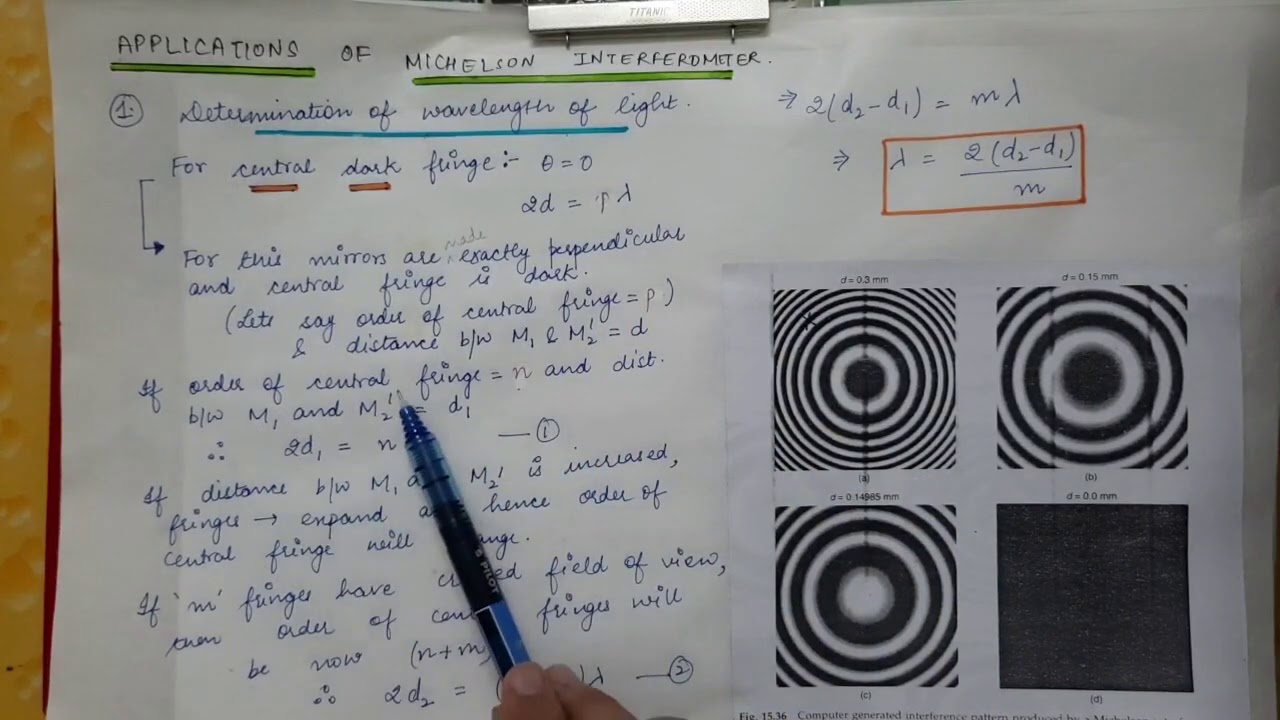 TITANIC
APPLICATIONS OF MICHELSON INTERFEROMETER.
① Determination of wavelength of light.
For central dark fringe :- θ = 0
2d = pλ
For this mirrors are made exactly perpendicular
and central fringe is dark.
(Lets say order of central fringe = p)
& distance b/w M₁ & M₂' = d
If order of central fringe = n and dist.
b/w M₁ and M₂' = d₁
∴ 2d₁ = n — ①
If distance b/w M₁ M₂' is increased,
fringes → expand hence order of
central fringe will
If 'm' fringes have field of view,
then order of fringes will
be now (n+m)
∴ 2d₂ = ( )λ — ②
⇒ 2(d₂-d₁) = mλ
⇒ λ = 2(d₂-d₁)/m
d = 0.3 mm
(a)
d = 0.15 mm
(b)
d = 0.14985 mm
(c)
d = 0.0 mm
(d)
Fig. 15.36 Computer generated interference pattern produced by a Michelson
PILOT